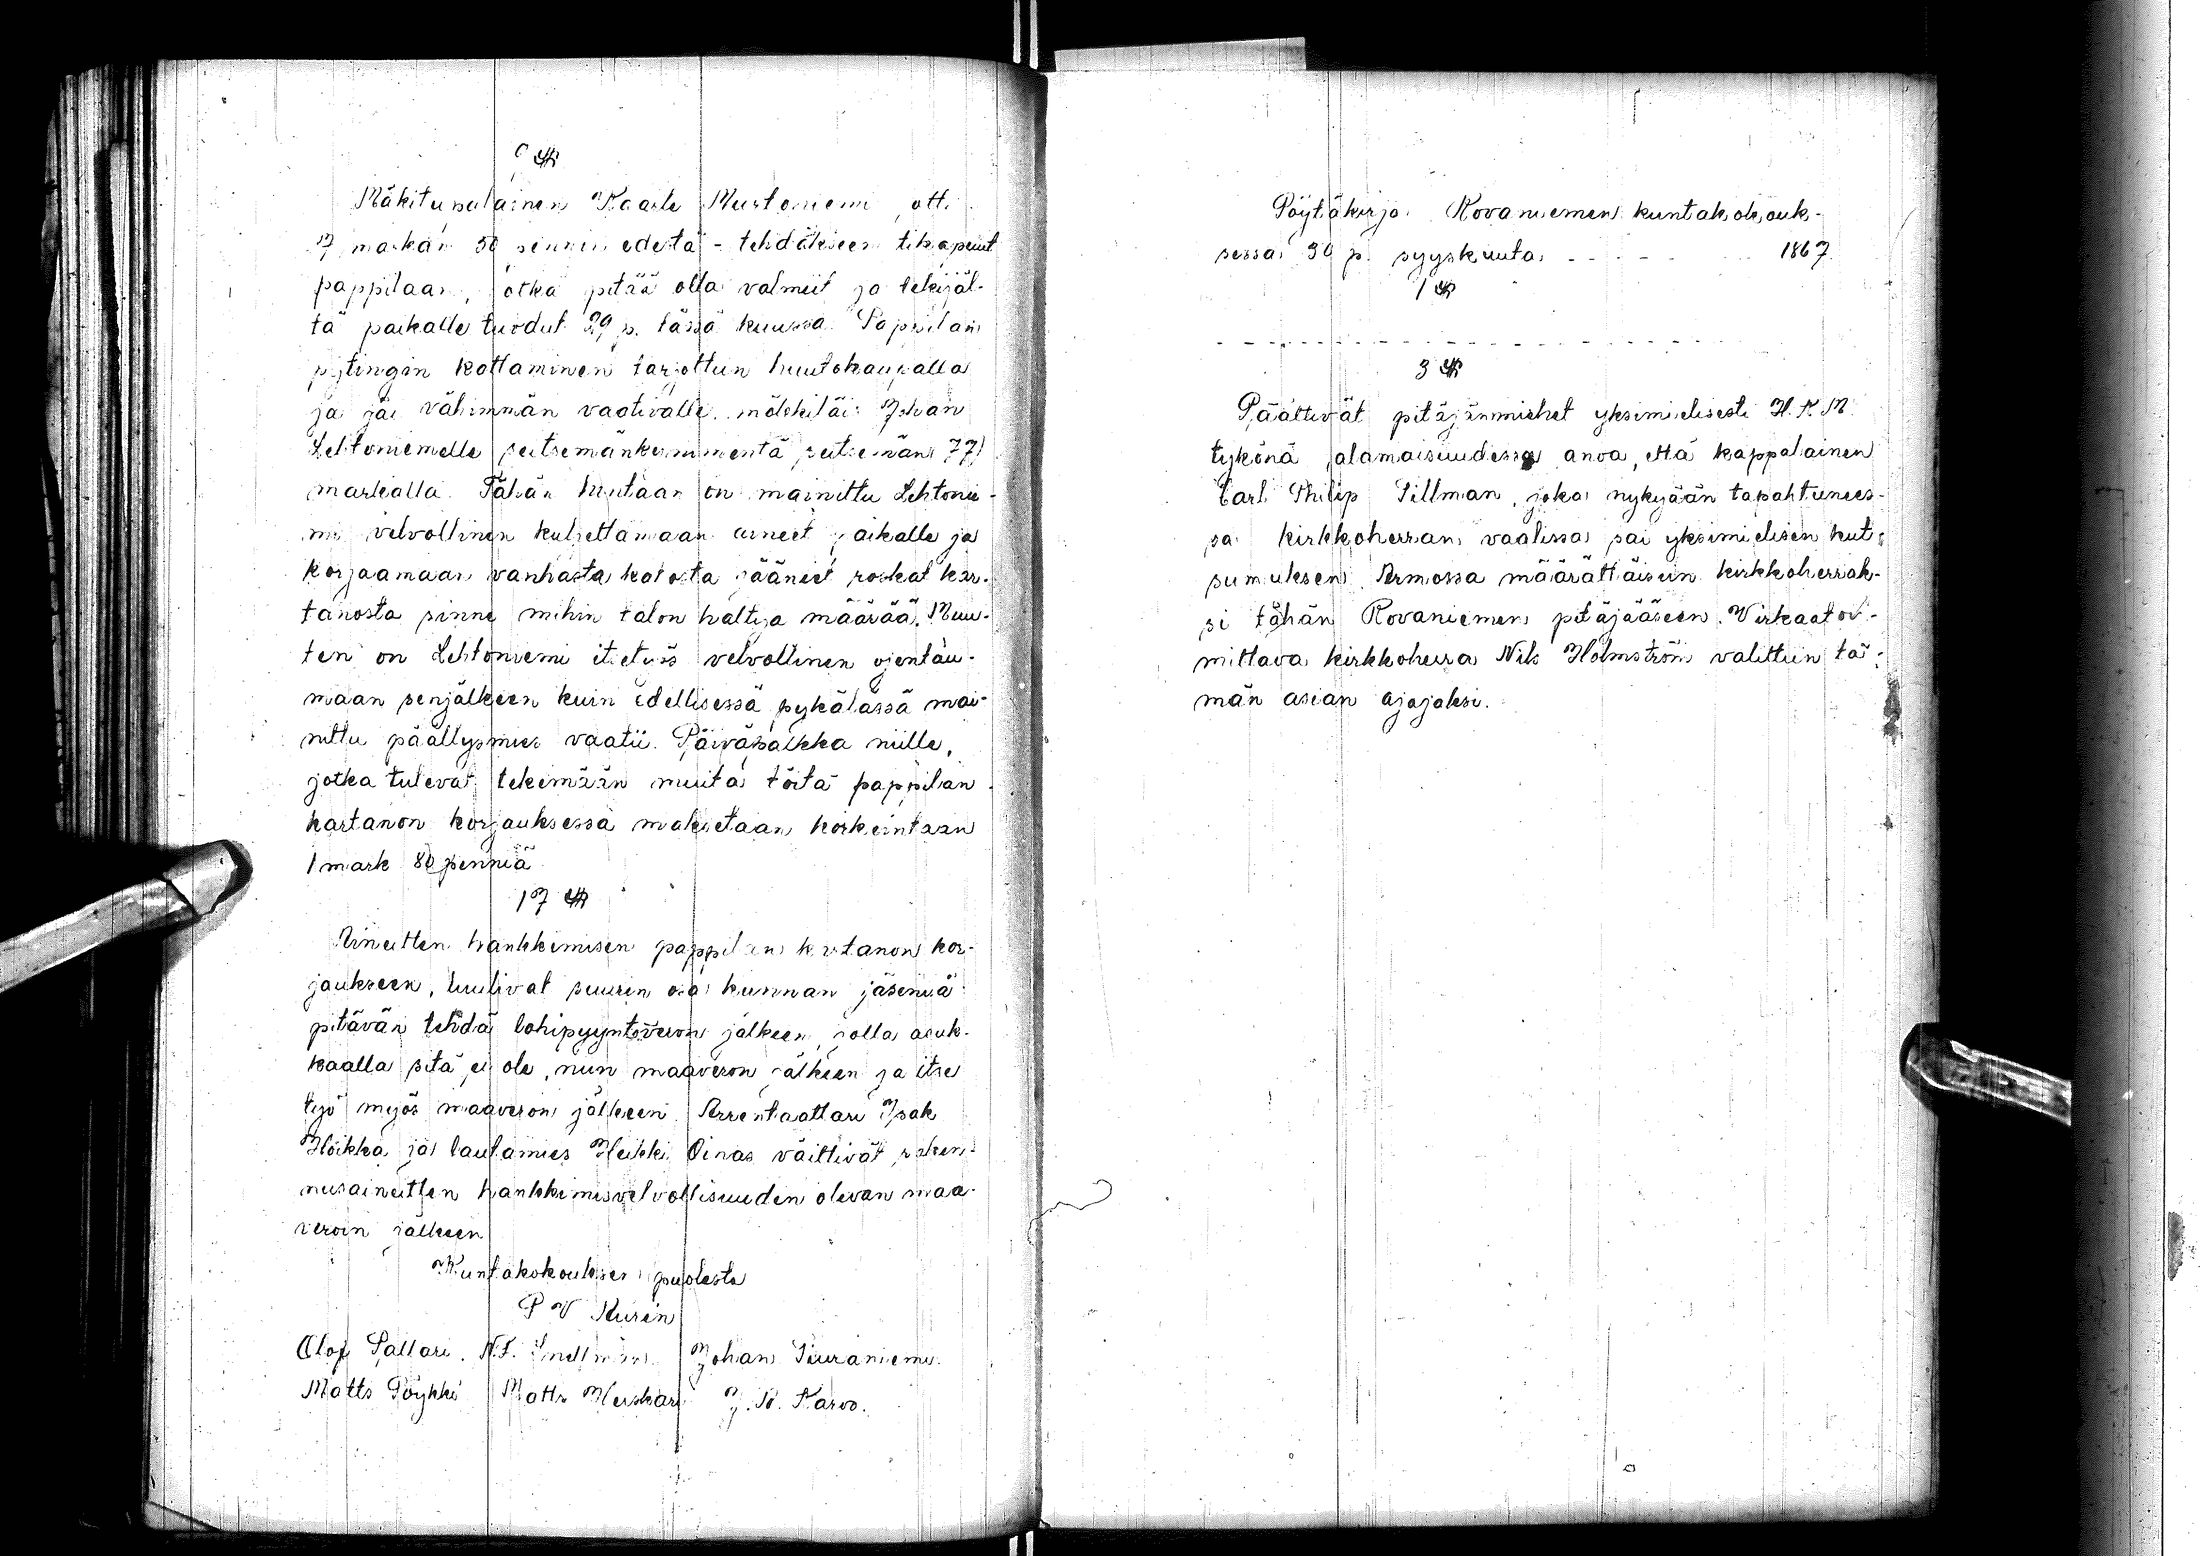 §
Mäkitupalainen Kaarle Mustoniemi, otti
17 markan 50 pennin edestä - tehdäkseen tikapuut
pappilaan, jotka pitää olla valmiit ja tekijäl-
tä paikalle tuodut 29 p. tässä kuussa. Pappilan
pytingin kattaminen tarjottiin huutokaupalla
ja jäi vähimmän vaativalle mökkiläi: Johan
Lehtoniemelle seitsemänkymmentä seitsemän 77)
markalla. Tähän hintaan on mainittu Lehtonie-
mi velvollinen kuljettamaan aineet paikalle ja
korjaamaan vanhasta katosta jääneet roskat kar-
tanosta sinne mihin talon haltija määrää. Muu-
ten on Lehtoniemi itsetyös velvollinen ojentau-
maan senjälkeen kuin edellisessä pykälässä mai-
nittu päällysmies vaatii. Päiväpalkka niille,
jotka tulevat tekemään muita töitä pappilan
kartanon korjauksessa maksetaan korkeintaan
1 mark 80 penniä
17 §
Aineitten hankkimisen pappilan kartanon kor-
jaukseen, luulivat suurin osa kunnan jäseniä
pitävän tehdä lohipyyntöveron jälkeen, jolla asuk-
kaalla sitä ei ole, niin maaveron jälkeen ja itse
työ myös maaveron jälkeen. Arrentaattari Isak
Höikkä ja lautamies Heikki Oinas väittivät raken-
nusaineitten hankkimisvelvollisuuden olevan maa-
veroin jälkeen
Kuntakokouksen puolesta
P W Kurén
Olof Pallari. N.F. Snellman. Johan Siuraniemi.
Matts Pöykkö Matts Heiskari J. K. Karvo.
Pöytäkirja Rovaniemen kuntakokouk-
sessa 30 p. syyskuuta - - - - - 1867
1 §
- - - - - - - - - - - - - - - - - -
3 §
Päättivät pitäjänmiehet yksimielisesti H. K. M.
tykönä alamaisuudessa anoa, että kappalainen
Carl Philip Lillman, joka nykyään tapahtunees-
sa kirkkoherran vaalissa sai yksimielisen kut-
sumuksen, Armossa määrättäisiin kirkkoherrak-
si tähän Rovaniemen pitäjääseen. Virkaatoi-
mittava kirkkoherra Nils Holmström valittiin tä-
män asian ajajaksi.